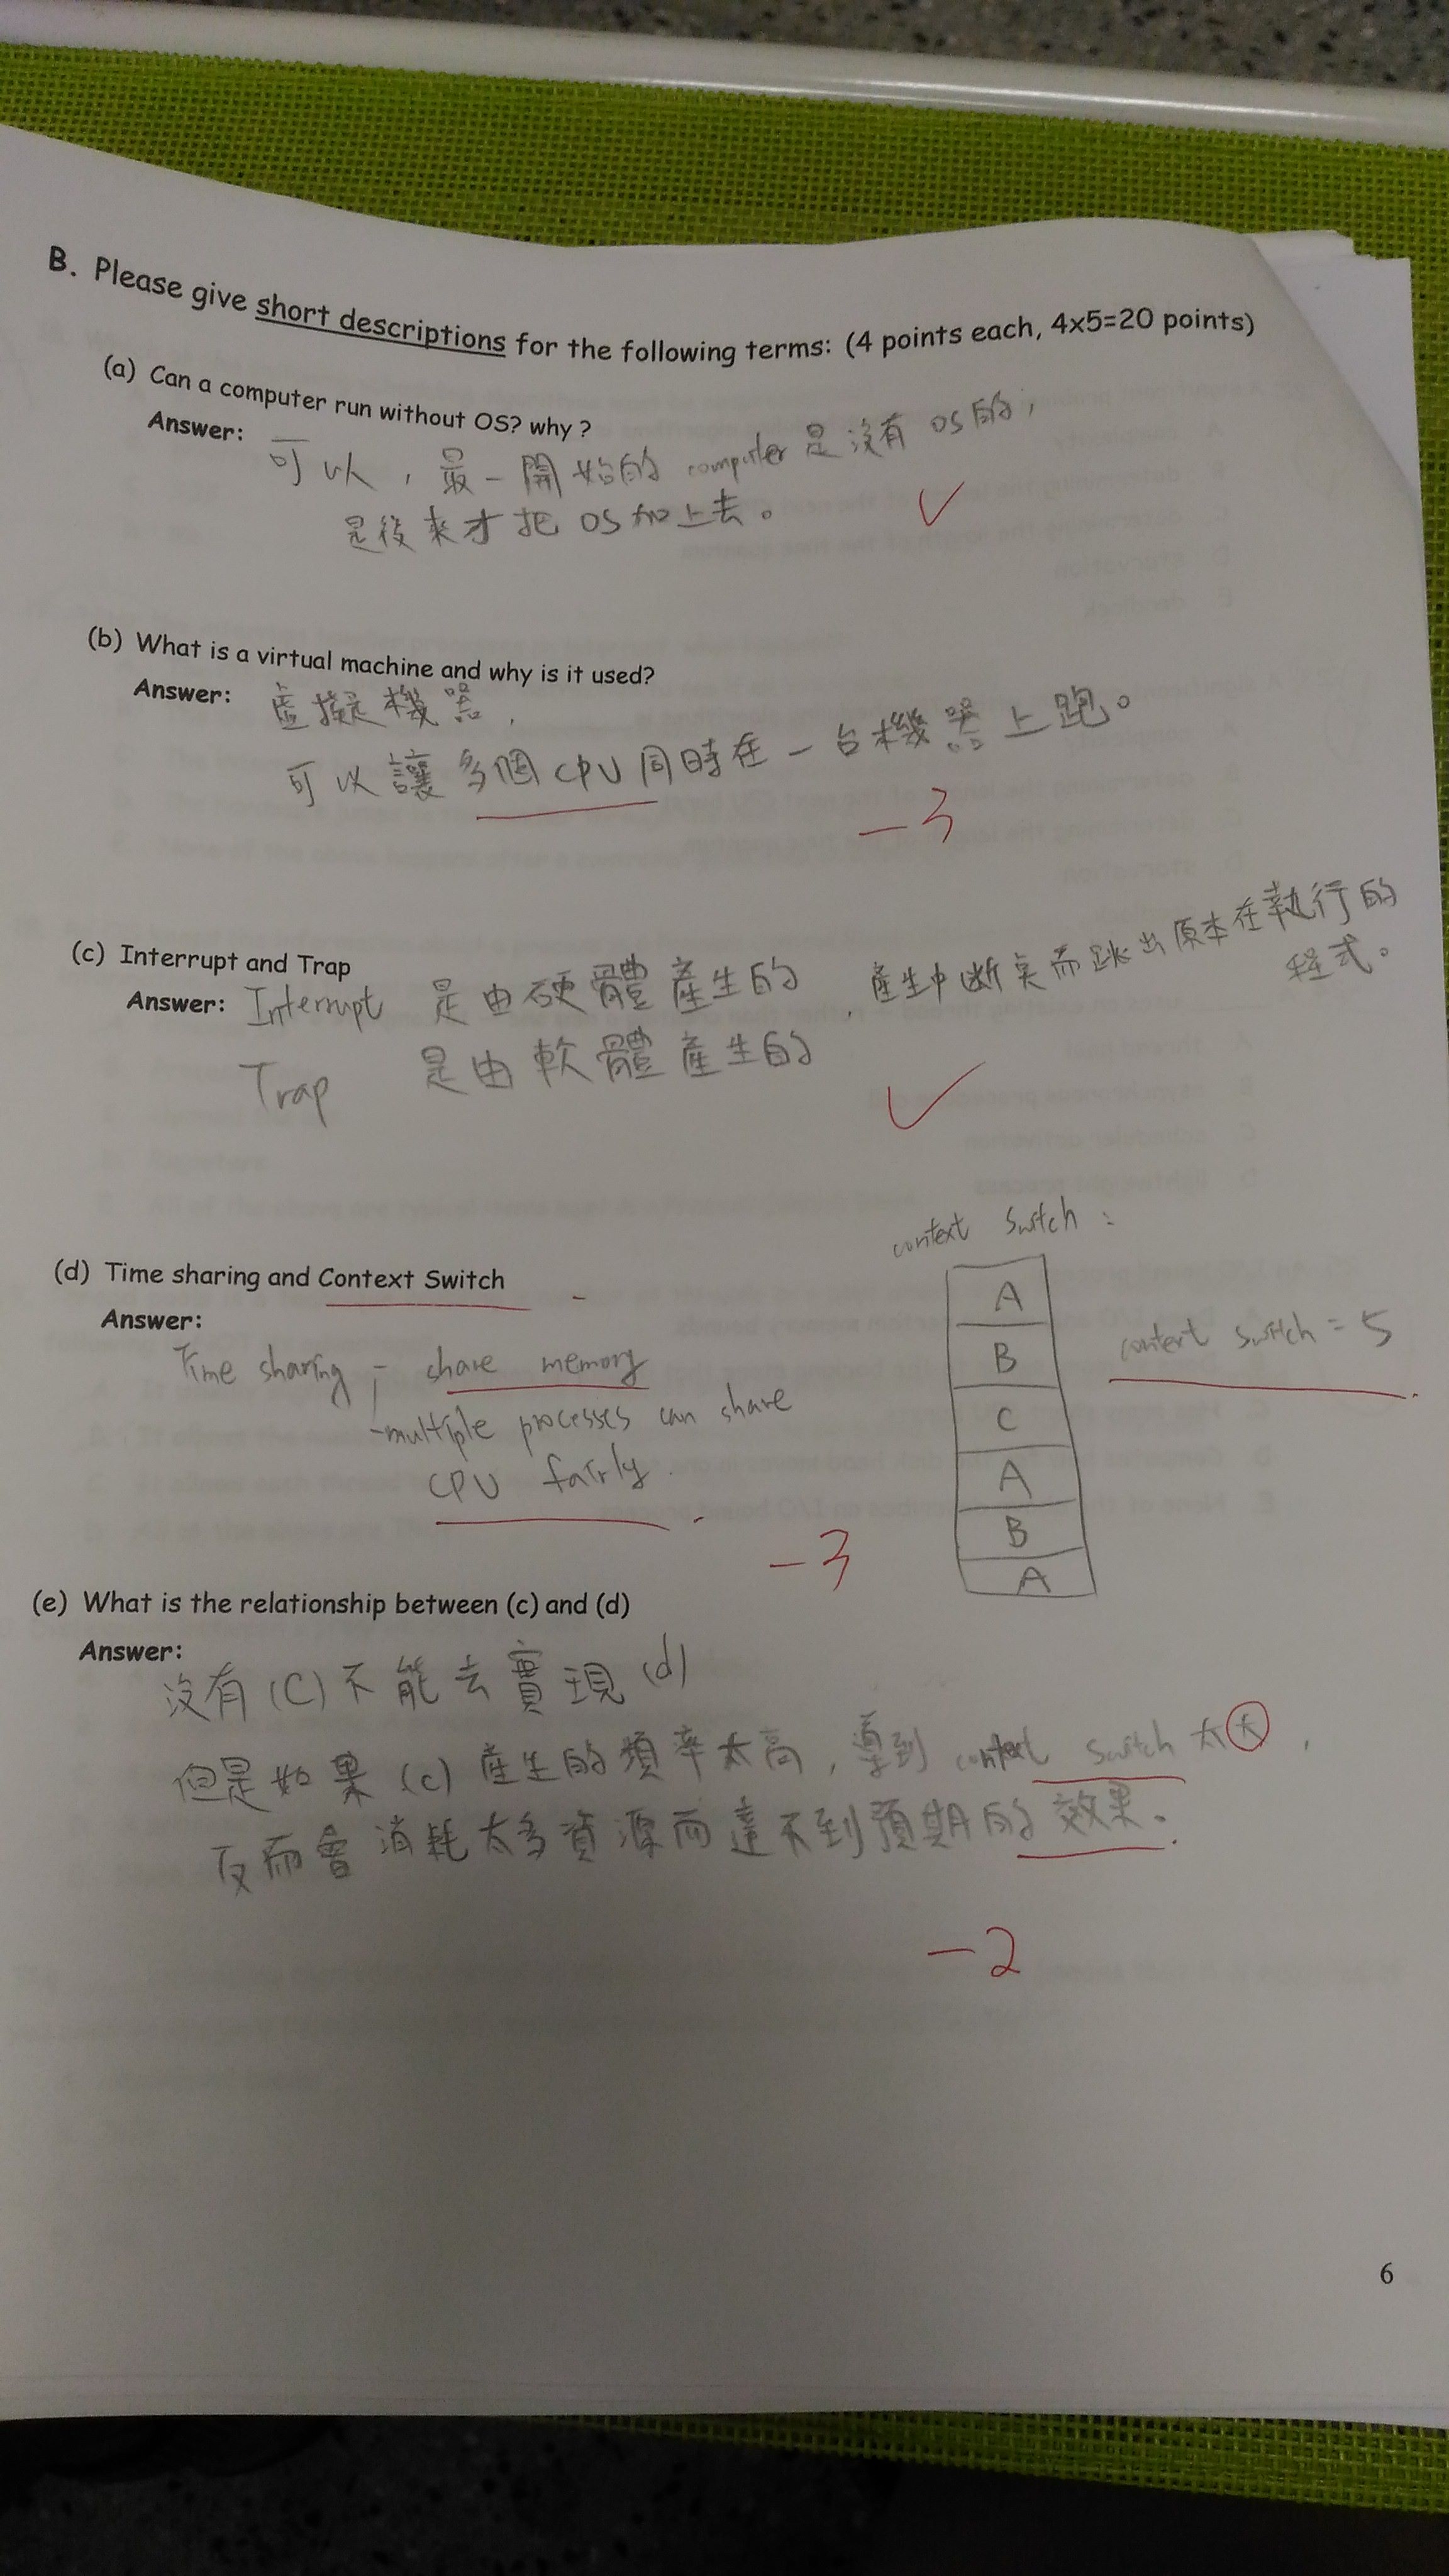 B. Please give short descriptions for the following terms: (4 points each, 4x5=20 points)
(a) Can a computer run without OS? why ?
Answer: 可以，最一開始的 computer 是沒有 OS 的，
是後來才把 OS 加上去。
(b) What is a virtual machine and why is it used?
Answer: 虛擬機器，
可以讓多個 CPU 同時在一台機器上跑。
-3
(c) Interrupt and Trap
Answer: Interrupt 是由硬體產生的，產生中斷 而跳出原本在執行的
程式。
Trap 是由軟體產生的
context switch :
(d) Time sharing and Context Switch
Answer:
Time sharing : - share memory
-multiple processes can share
CPU fairly.
A
B
C
A
B
A
context switch = 5
-3
(e) What is the relationship between (c) and (d)
Answer:
沒有 (C) 不能去實現 (d)
但是如果 (c) 產生的頻率太高，導到 context switch 太大，
反而會消耗太多資源而達不到預期的效果。
-2
6